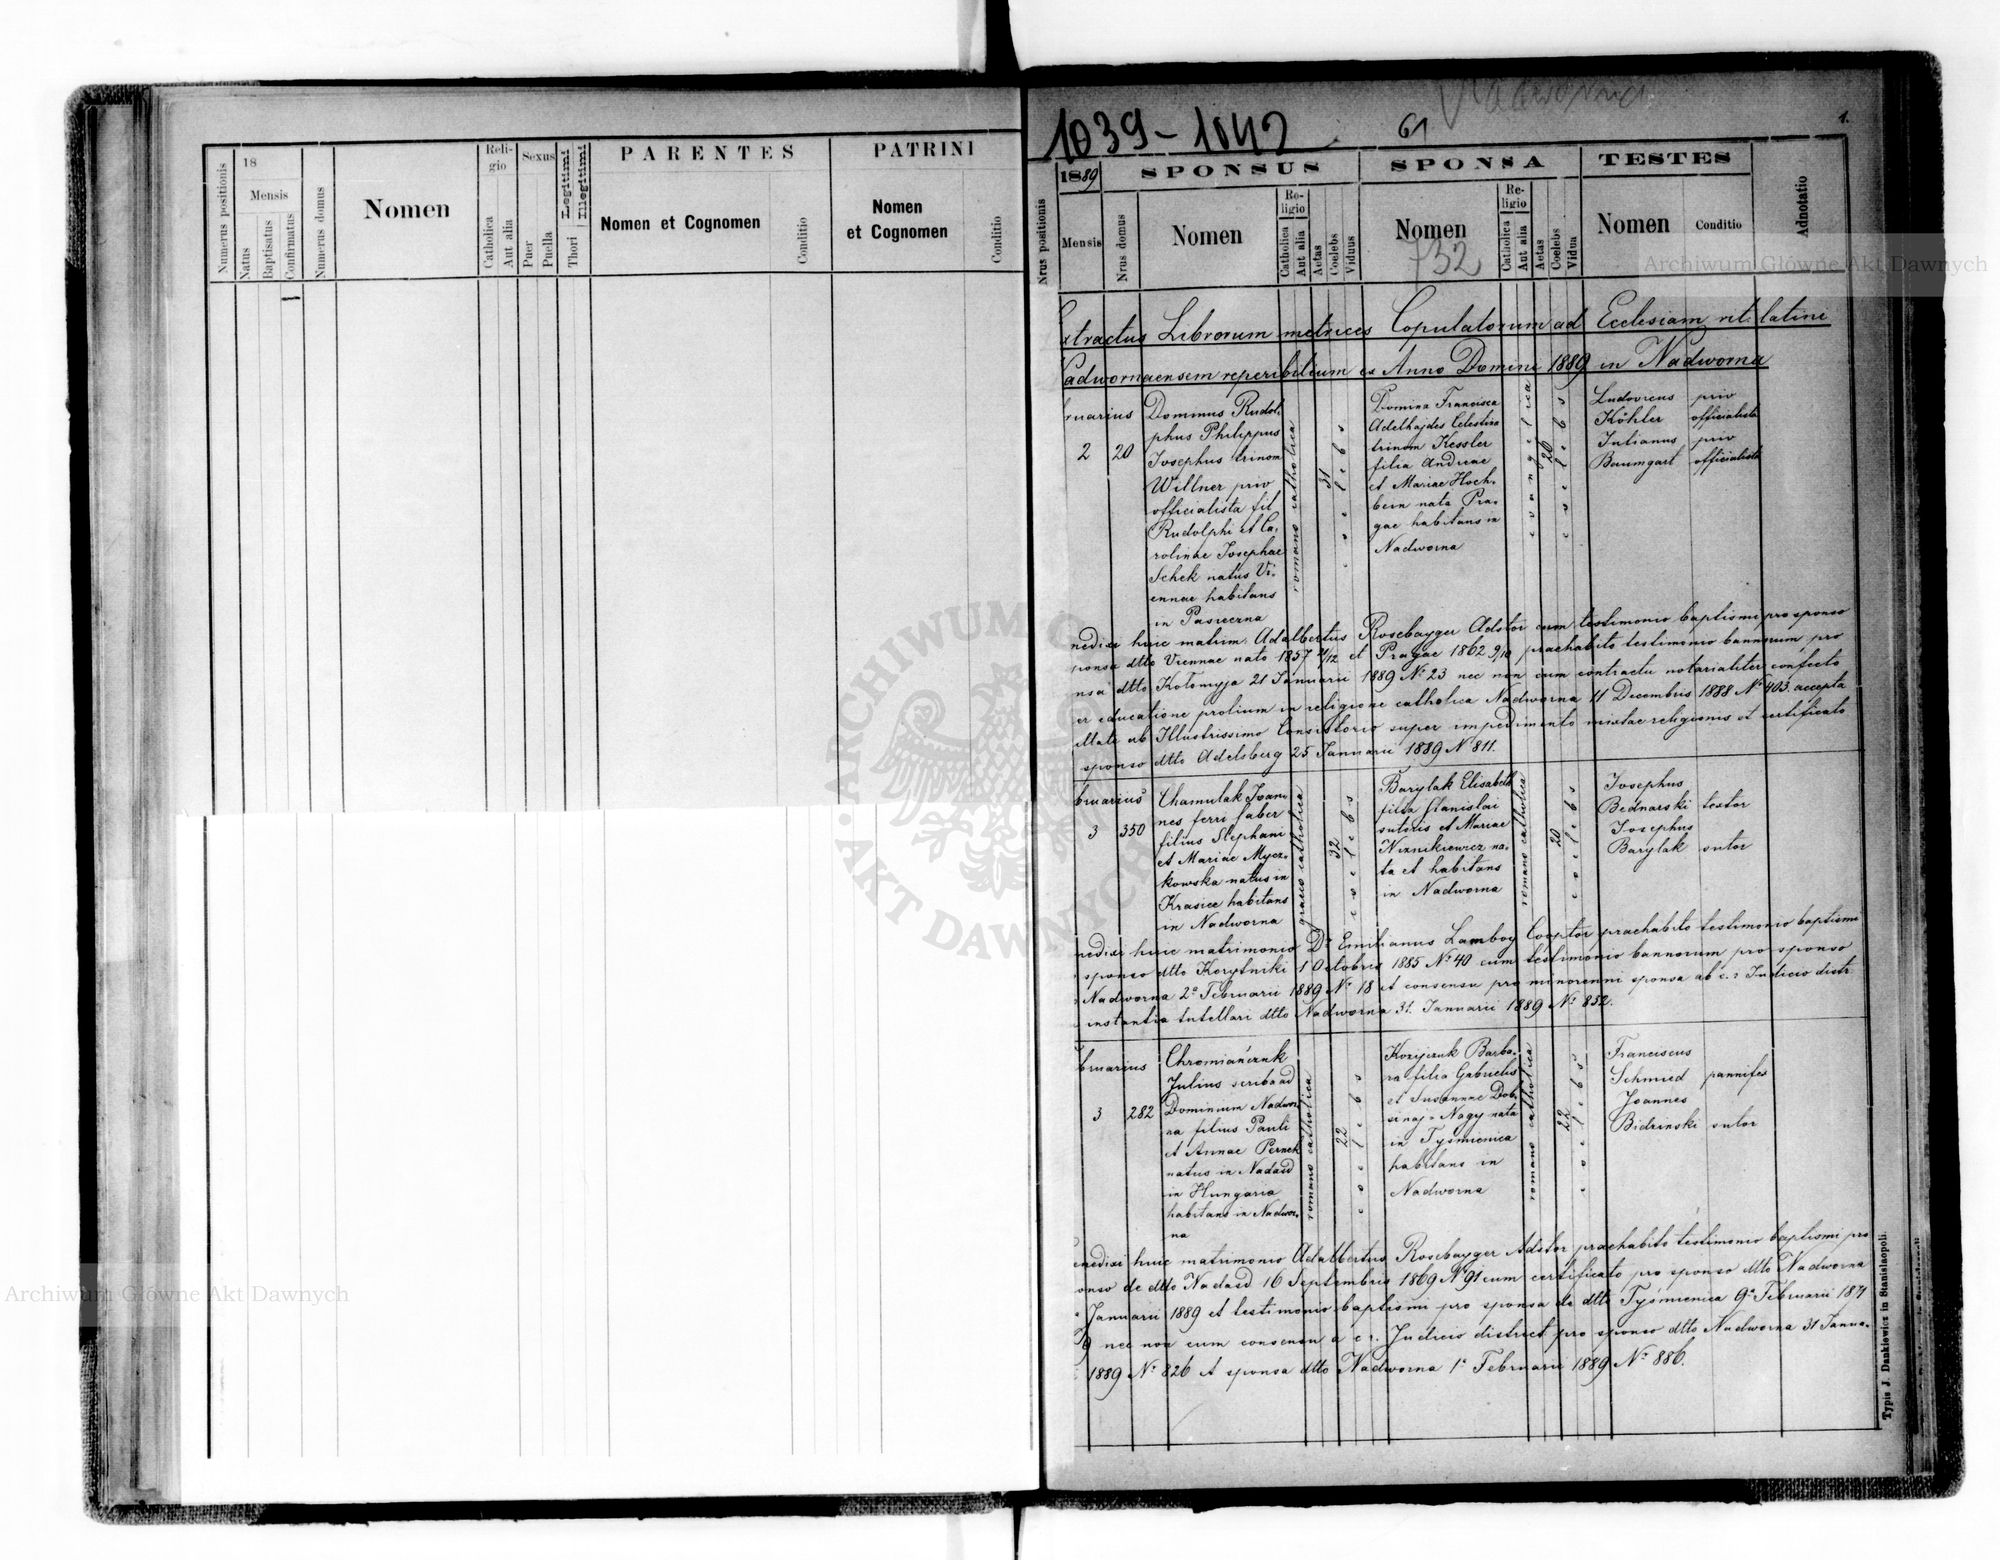 Numerus positionis
18
Mensis
Natus
Baptisatus
Confirmatus
Numerus domus
Nomen
Reli-
gio
Catholica
Aut alia
Sexus
Puer
Puella
Legitimi
Illegitimi
Thori
PARENTES
Nomen et Cognomen
Conditio
PATRINI
Nomen
et Cognomen
Conditio
1039-1042
61
Nadworna
1.
Nrus positionis
1889
Mensis
SPONSUS
Nrus domus
Nomen
Re-
ligio
Catholica
Aut alia
Aetas
Coelebs
Viduus
SPONSA
Nomen
732
Re-
ligio
Catholica
Aut alia
Aetas
Coelebs
Vidua
TESTES
Nomen
Conditio
Adnotatio
xtractus Librorum metrices Copulatorum ad Ecclesiam rit. latini
adwornaensem reperibilium ex Anno Domini 1889 in Nadworna
ruarius
2
20
Dominus Rudol-
phus Philippus
Josephus trinom
Willner priv
officialista fil
Rudolphi et Ca-
rolinae Josephae
Schek natus Vi-
ennae habitans
in Pasieczna
romano catholica
31
coelebs
Domina Francisca
Adelhajdes Celestina
trinom Kessler
filia Andreae
et Mariae Hoch-
bein nata Pra-
gae habitans in
Nadworna
evangelica
26
coelebs
Ludovicus priv
Köhler officialista
Julianus priv
Baumgart officialista
nedixi huic matrim. Adalbertus Rosebayger Adstor cum testimonio baptismi pro sponso
ponsa dtto Viennae nato 1857 21/12 et Pragae 1862 9/10 praehabito testimonio bannorum pro
nsa dtto Kołomyja 21 Januarii 1889 No 23 nec non cum contractu notarialiter confecto
er educatione prolium in religione catholica Nadworna 11 Decembris 1888 No 403. accepta
ltate ab Illustrissimo Consistorio super impedimento mixtae religionis et certificato
sponso dtto Adelsberg 25 Januarii 1889 No 811.
bruarius
3
350
Chamulak Joan-
nes ferri faber
filius Stephani
et Mariae Mycz-
kowska natus in
Krasice habitans
in Nadworna
graeco catholica
32
coelebs
Barylak Elisabeth
filia Stanislai
sutoris et Mariae
Niznikiewicz na-
ta et habitans
in Nadworna
romano catholica
20
coelebs
Josephus
Bednarski textor
Josephus
Barylak sutor
nedixi huic matrimonio Dr Emilianus Lamboy Cooptor praehabito testimonio baptismi
sponso dtto Korytniki 1 Octobris 1885 No 40 cum testimonio bannorum pro sponso
Nadworna 2a Februarii 1889 No 18 et consensu pro minorenni sponsa ab c. r Judicio distr
instantia tutellari dtto Nadworna 31. Januarii 1889 No 852.
bruarius
3
282
Chromiańczuk
Julius scriba ad
Dominium Nadwor-
na filius Pauli
et Annae Pernek
natus in Nadasd
in Hungaria
habitans in Nadwor-
na
romano catholica
22
coelebs
Kozijczuk Barba-
ra filia Gabrielis
et Susannae Dob-
sinaj-Nagy nata
in Tyśmienica
habitans in
Nadworna
romano catholica
22
coelebs
Franciscus
Schmied pannifex
Joannes
Bidzinski sutor
nedixi huic matrimonio Adalbertus Rosebayger Adstor praehabito testimonio baptismi pro
onso de dtto Nadasd 16 Septembris 1869 No 91 cum certificato pro sponso dtto Nadworna
Januarii 1889 et testimonio baptismi pro sponsa de dtto Tyśmienica 9a Februarii 1871
9 nec non cum consensu a c r. Judicio district. pro sponso dtto Nadworna 31 Janua-
1889 No 826 et sponsa dtto Nadworna 1a Februarii 1889 No 886.
Typis J. Dankiewicz in Stanislaopoli.
Archiwum Główne Akt Dawnych
Archiwum Główne Akt Dawnych